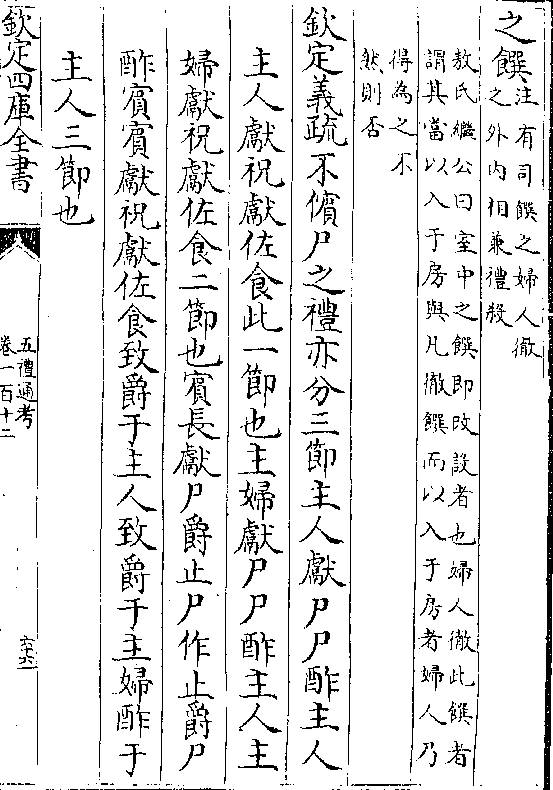 之饌
注有司饌之婦人徹
之外内相兼禮殺
敖氏繼公曰室中之饌即改設者也婦人徹此饌者
謂其當以入于房與凡徹饌而以入于房者婦人乃
得為之不
然則否
欽定義疏不儐尸之禮亦分三節主人獻尸尸酢主人
主人獻祝獻佐食此一節也主婦獻尸尸酢主人主
婦獻祝獻佐食二節也賓長獻尸爵止尸作止爵尸
酢賓賓獻祝獻佐食致爵于主人致爵于主婦酢于
主人三節也
欽定四庫全書
五禮通考
卷一百十二
六六